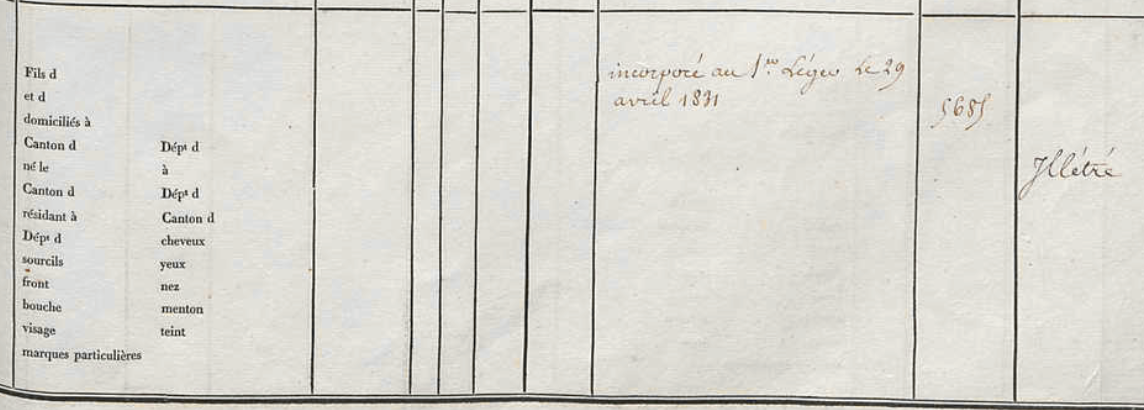 Fils d
et d
domiciliés à
Canton d Dépt d
né le à
Canton d Dépt d
résidant à Canton d
Dépt d cheveux
sourcils yeux
front nez
bouche menton
visage teint
marques particulières
incorporé au 1er Léger le 29
avril 1831
5685
Illétré